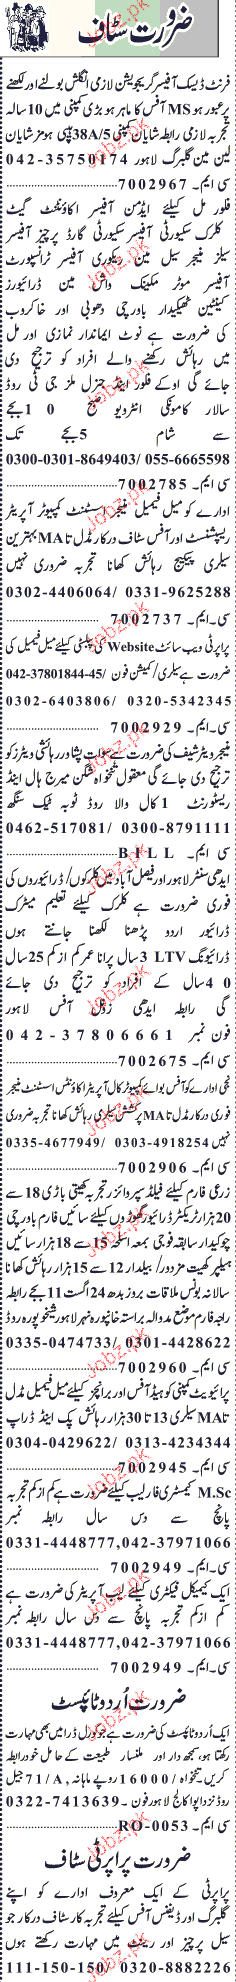 ضرورت سٹاف
فرنٹ ڈیسک آفیسر گریجویشن لازمی انگلش بولنے اور لکھنے
پر عبور ہو MS آفس کا ماہر ہو بڑی کمپنی میں 10 سالہ
تجربہ لازمی رابطہ شایان کمپنی 38A/5 شایان
لین مین گلبرگ لاہور 042-35750174
سی ایم۔ 7002967
فلور مل کیلئے ایڈمن آفیسر اکاؤنٹنٹ گیٹ
کلرک سکیورٹی آفیسر سکیورٹی گارڈ پرچیز آفیسر
سیلز منیجر سیل مین ریکوری آفیسر ٹرانسپورٹ
آفیسر موٹر مکینک واش مین ڈرائیورز
کینٹین ٹھیکیدار باورچی دھوبی اور خاکروب
کی ضرورت ہے نوٹ ایماندار نمازی اور مل
میں رہائش رکھنے والے افراد کو ترجیح دی
جائے گی اوکے فلور اینڈ جنرل ملز جی ٹی روڈ
سالار کامونکی انٹرویو صبح 10 بجے
سے شام 5 بجے تک
0300-0301-8649403/ 055-6665598
سی ایم۔ 7002785
ادارے کو میل فیمیل منیجر اسسٹنٹ کمپیوٹر آپریٹر
ریسپشنسٹ اور آفس سٹاف درکار مڈل تا MA بہترین
سیلری پیکیج رہائش کھانا تجربہ ضروری نہیں
0302-4406064/ 0331-9625288
سی۔ایم۔ 7002737
پراپرٹی ویب سائٹ Website کی پبلسٹی کیلئے میل فیمیل کی
ضرورت ہے سیلری/کمیشن فون 042-37801844-45/
0302-6403806/ 0320-5342345
سی۔ایم۔ 7002929
منیجر ویٹر شیف کی ضرورت ہے سوات پشاور رہائشی ویٹرز کو
ترجیح دی جائے گی معقول تنخواہ شگن میرج ہال اینڈ
ریسٹورنٹ 1 کال والا روڈ ٹوبہ ٹیک سنگھ
0462-517081/ 0300-8791111
سی ایم۔ BILL
ایدھی سنٹر لاہور اور فیصل آباد میں کلرکوں/ڈرائیوروں کی
فوری ضرورت ہے کلرک کیلئے تعلیم میٹرک
ڈرائیور اردو پڑھنا لکھنا جانتے ہوں
ڈرائیونگ LTV 3 سال پرانا عمر کم از کم 25 سال
40 سال کے افراد کو ترجیح دی جائے
گی رابطہ ایدھی زونل آفس لاہور
فون نمبر 042-37806661
سی ایم۔ 7002675
نجی ادارے کو آفس بوائے کمپیوٹر کال آپریٹر اکاؤنٹس اسسٹنٹ منیجر
فوری درکار مڈل تا MA پرکشش سیلری رہائش کھانا تجربہ ضروری
نہیں 0335-4677949/ 0303-4918254
سی ایم۔ 7002906
زرعی فارم کیلئے فیلڈ سپروائزر تجربہ کھیتی باڑی 18 سے
20 ہزار ٹریکٹر ڈرائیور گھوڑوں کیلئے سائیس فارم باورچی
چوکیدار سابقہ فوجی بمعہ اسلحہ 15 سے 18 ہزار سائیس
ہیلپر کھیت مزدور/بیلدار 12 سے 15 ہزار رہائش کھانا
سالانہ بونس ملاقات بروز بدھ 24 اگست 11 بجے رابطہ
راجہ فارم موضع مدوالہ براستہ خانپورہ نہر لاہور شیخوپورہ روڈ
0335-0474733/ 0301-4428622
سی ایم۔ 7002960
پرائیویٹ کمپنی کو ہیڈ آفس اور برانچز کیلئے میل فیمیل مڈل
تا MA سیلری 13 تا 30 ہزار رہائش پک اینڈ ڈراپ
0304-0429622/ 0313-4234344
سی ایم۔ 7002945
M.Sc کیمسٹری فار لیب کیلئے ضرورت ہے کم از کم تجربہ
پانچ سے دس سال رابطہ نمبر
0331-4448777,042-37971066
سی۔ایم۔ 7002949
ایک کیمیکل فیکٹری کیلئے لیب آپریٹر کی ضرورت ہے
کم از کم تجربہ پانچ سے دس سال رابطہ نمبر
0331-4448777,042-37971066
سی۔ایم۔ 7002949
ضرورت اُردو ٹائپسٹ
ایک اُردو ٹائپسٹ کی ضرورت ہے جو کورل ڈرا میں بھی مہارت
رکھتا ہو، سمجھ دار اور ملنسار طبیعت کے حامل خود رابطہ
کریں۔ تنخواہ/16000 روپے ماہانہ، 71/A، جیل
روڈ نزد اپوا کالج لاہور فون۔ 0322-7413639
سی۔ایم۔ RO-0053
ضرورت پراپرٹی سٹاف
پراپرٹی کے ایک معروف ادارے کو اپنے
گلبرگ اور ڈیفنس آفس کیلئے تجربہ کار سٹاف درکار جو
سیل پرچیز اور رینٹ میں مہارت رکھتے ہوں
111-150-150/ 0320-8882226